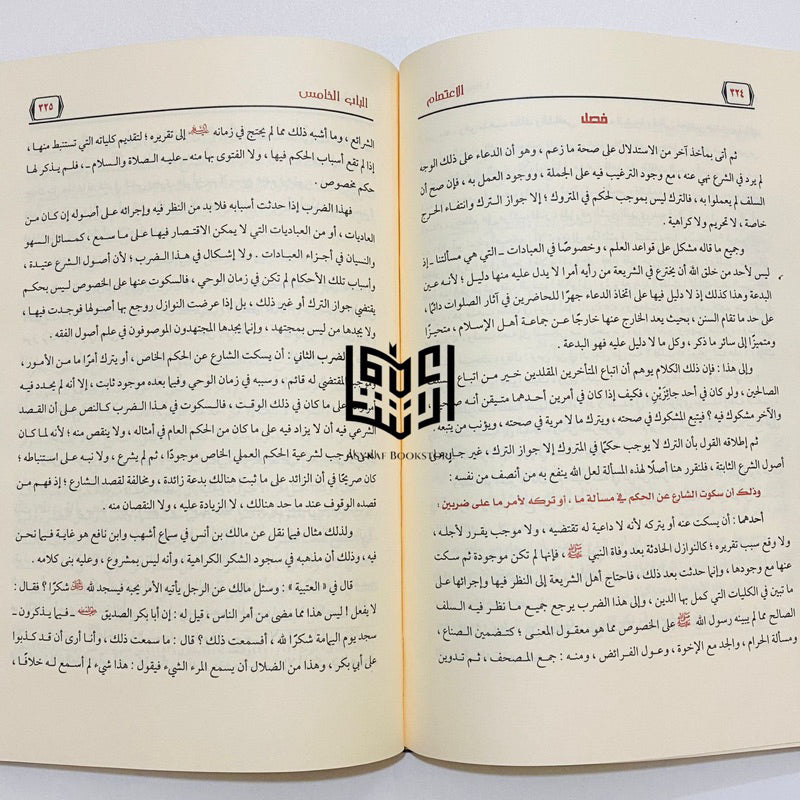 ٣٢٤
الاعتصام
فصل
ثم أتى بمأخذ آخر من الاستدلال على صحة ما زعم ، وهو أن الدعاء على ذلك الوجه
لم يرد في الشرع نهي عنه ، مع وجود الترغيب فيه على الجملة ، ووجود العمل به ، فإن صح أن
السلف لم يعملوا به ، فالترك ليس بموجب لحكم في المتروك ؛ إلا جواز الترك وانتفاء الحرج
خاصة ، لا تحريم ولا كراهية .
وجميع ما قاله مشكل على قواعد العلم ، وخصوصًا في العبادات ـ التي هي مسألتنا ـ إذ
ليس لأحد من خلق الله أن يخترع في الشريعة من رأيه أمرا لا يدل عليه منها دليل ؛ لأنه عين
البدعة وهذا كذلك إذ لا دليل فيها على اتخاذ الدعاء جهرًا للحاضرين في آثار الصلوات دائمًا ،
على حد ما تقام السنن ، بحيث يعد الخارج عنها خارجًا عن جماعة أهل الإسلام ، متحيزًا
ومتميزًا إلى سائر ما ذكر ، وكل ما لا دليل عليه فهو البدعة .
وإلى هذا : فإن ذلك الكلام يوهم أن اتباع المتأخرين المقلدين خير من اتباع
الصالحين ، ولو كان في أحد جائزين ، فكيف إذا كان في أمرين أحدهما متيقن أنه صحيح ،
والآخر مشكوك فيه ؟ فيتبع المشكوك في صحته ، ويترك ما لا مرية في صحته ، ويؤنب من يتبعه .
ثم إطلاقه القول بأن الترك لا يوجب حكمًا في المتروك إلا جواز الترك ، غير جار على
أصول الشرع الثابتة ، فلنقرر هنا أصلًا لهذه المسألة لعل الله ينفع به من أنصف من نفسه :
وذلك أن سكوت الشارع عن الحكم في مسألة ما ، أو تركه لأمر ما على ضربين :
أحدهما : أن يسكت عنه أو يتركه لأنه لا داعية له تقتضيه ، ولا موجب يقرر لأجله ،
ولا وقع سبب تقريره ؛ كالنوازل الحادثة بعد وفاة النبي ﷺ ، فإنها لم تكن موجودة ثم سكت
عنها مع وجودها ، وإنما حدثت بعد ذلك ، فاحتاج أهل الشريعة إلى النظر فيها وإجرائها على
ما تبين في الكليات التي كمل بها الدين ، وإلى هذا الضرب يرجع جميع ما نظر فيه السلف
الصالح مما لم يبينه رسول الله ﷺ على الخصوص مما هو معقول المعنى ؛ كتضمين الصناع ،
ومسألة الحرام ، والجد مع الإخوة ، وعول الفرائض ، ومنه : جمع المصحف ، ثم تدوين
الباب الخامس
٣٢٥
الشرائع ، وما أشبه ذلك مما لم يحتج في زمانه إلى تقريره ؛ لتقديم كلياته التي تستنبط منها ،
إذا لم تقع أسباب الحكم فيها ، ولا الفتوى بها منه ـ عليه الصلاة والسلام ـ ، فلم يذكر لها
حكم مخصوص .
فهذا الضرب إذا حدثت أسبابه فلا بد من النظر فيه وإجرائه على أصوله إن كان من
العاديات ، أو من العباديات التي لا يمكن الاقتصار فيها على ما سمع ، كمسائل السهو
والنسيان في أجزاء العبادات . ولا إشكال في هذا الضرب ؛ لأن أصول الشرع عتيدة ،
وأسباب تلك الأحكام لم تكن في زمان الوحي ، فالسكوت عنها على الخصوص ليس بحكم
يقتضي جواز الترك أو غير ذلك ، بل إذا عرضت النوازل روجع بها أصولها فوجدت فيها ،
ولا يجدها من ليس بمجتهد ، وإنما يجدها المجتهدون الموصوفون في علم أصول الفقه .
الضرب الثاني : أن يسكت الشارع عن الحكم الخاص ، أو يترك أمرًا ما من الأمور ،
وموجبه المقتضي له قائم ، وسببه في زمان الوحي وفيما بعده موجود ثابت ، إلا أنه لم يحدد فيه
أمر زائد على ما كان في ذلك الوقت ، فالسكوت في هذا الضرب كالنص على أن القصد
الشرعي فيه أن لا يزاد فيه على ما كان من الحكم العام في أمثاله ، ولا ينقص منه ؛ لأنه لما كان
الموجب لشرعية الحكم العملي الخاص موجودًا ، ثم لم يشرع ، ولا نبه على استنباطه ؛
كان صريحًا في أن الزائد على ما ثبت هنالك بدعة زائدة ، ومخالفة لقصد الشارع ؛ إذ فهم من
قصده الوقوف عند ما حد هنالك ، لا الزيادة عليه ، ولا النقصان منه .
ولذلك مثال فيما نقل عن مالك بن أنس في سماع أشهب وابن نافع هو غاية فيما نحن
فيه ، وذلك أن مذهبه في سجود الشكر الكراهية ، وأنه ليس بمشروع ، وعليه بنى كلامه .
قال في « العتبية » : وسئل مالك عن الرجل يأتيه الأمر يحبه فيسجد لله شكرًا ؟ فقال :
لا يفعل ! ليس هذا مما مضى من أمر الناس ، قيل له : إن أبا بكر الصديق ـ فيما يذكرون ـ
سجد يوم اليمامة شكرًا لله ، أفسمعت ذلك ؟ قال : ما سمعت ذلك ، وأنا أرى أن قد كذبوا
على أبي بكر ، وهذا من الضلال أن يسمع المرء الشيء فيقول : هذا شيء لم أسمع له خلافًا ،
BOOKSTORE